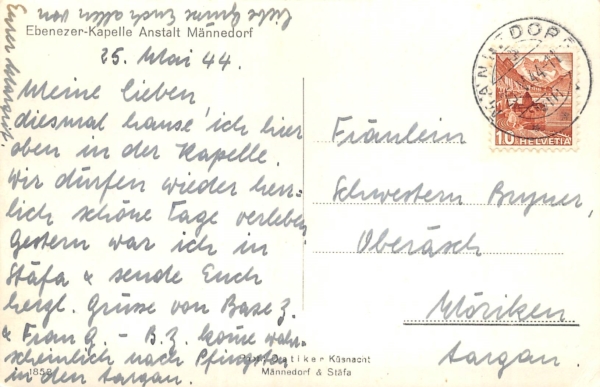 Ebenezer-Kapelle Anstalt Männedorf
25. Mai 44.
Meine lieben,
diesmal hause ich hier
oben in der Kapelle.
Wir dürfen wieder herr-
lich schöne Tage verleben
Gestern war ich in
Stäfa & sende Euch
herzl. Grüsse von Base Z.
& Frau G. - B.Z. kome wahr-
scheinlich nach Pfingsten
in den Aargau.
Liebe Grüsse Euch allen von
Eurer Margrit.
Fräulein
Schwestern Bryner,
Oberäsch
Möriken
Aargau
MÄNNEDORF
10 HELVETIA
Dutiker Küsnacht
Männedorf & Stäfa
1858